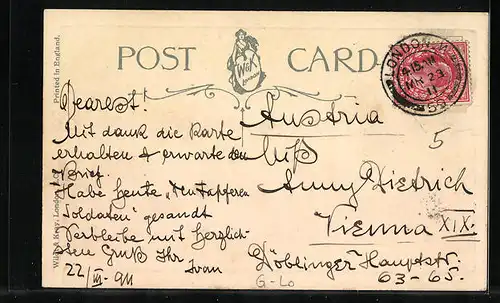 Printed in England.
POST CARD
W&K
London
LONDON. W.
23
11
53
Dearest!
Mit dank die Karte
erhalten & erwarte den
Brief.
Habe heute „Den tapferen
Soldaten" gesandt
Verbleibe mit herzlich-
sten Gruß Ihr Ivan
22/III-911
Austria
Miß
Anny Dietrich
Vienna XIX.
Döblinger Hauptstr.
63-65.
5
G-Lo
Wildt & Kray, London, E.C.